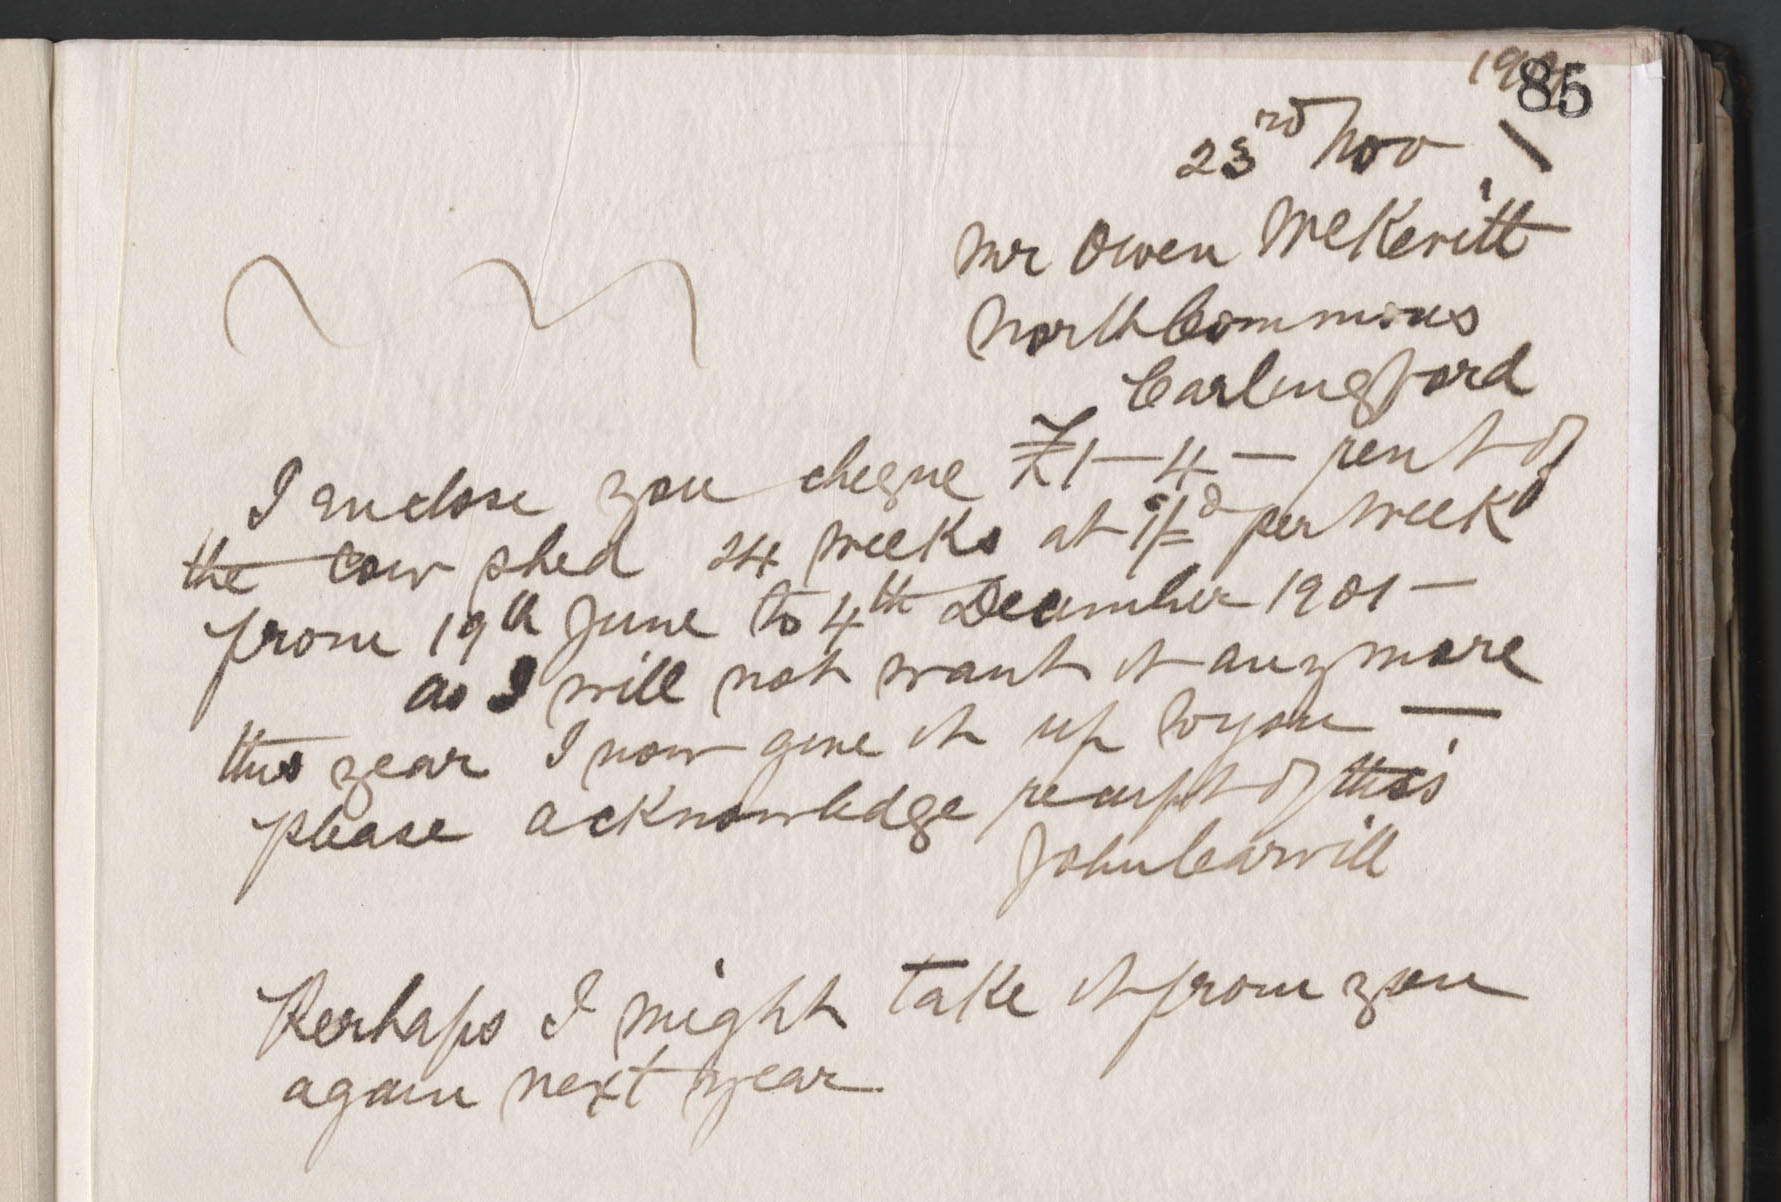 85
23rd Nov
Mr Owen McKevitt
North Commons
Carlingford
I enclose you cheque £1-4- rent of
the cow shed 24 weeks at 1/- per week
from 19th June to 4th December 1901-
as I will not want it any more
this year I now give it up to you -
please acknowledge receipt of this
John Carvill
Perhaps I might take it from you
again next year